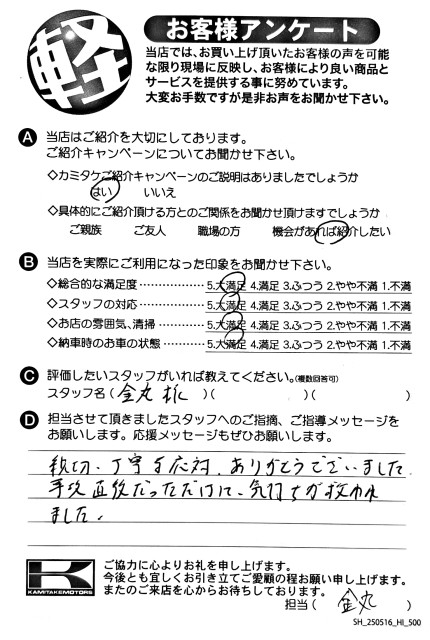 軽
お客様アンケート
当店では、お買い上げ頂いたお客様の声を可能
な限り現場に反映し、お客様により良い商品と
サービスを提供する事に努めています。
大変お手数ですが是非お声をお聞かせ下さい。
A 当店はご紹介を大切にしております。
ご紹介キャンペーンについてお聞かせ下さい。
◇カミタケご紹介キャンペーンのご説明はありましたでしょうか
はい いいえ
◇具体的にご紹介頂ける方とのご関係をお聞かせ頂けますでしょうか
ご親族 ご友人 職場の方 機会があれば紹介したい
B 当店を実際にご利用になった印象をお聞かせ下さい。
◇総合的な満足度 5.大満足 4.満足 3.ふつう 2.やや不満 1.不満
◇スタッフの対応 5.大満足 4.満足 3.ふつう 2.やや不満 1.不満
◇お店の雰囲気、清掃 5.大満足 4.満足 3.ふつう 2.やや不満 1.不満
◇納車時のお車の状態 5.大満足 4.満足 3.ふつう 2.やや不満 1.不満
C 評価したいスタッフがいれば教えてください。(複数回答可)
スタッフ名(金丸様)( )( )
D 担当させて頂きましたスタッフへのご指摘、ご指導メッセージを
お願いします。応援メッセージもぜひお願いします。
親切、丁寧な応対、ありがとうございました。
手術直後だっただけに、気持ちが救われ
ました。
KAMITAKEMOTORS
ご協力に心よりお礼を申し上げます。
今後とも宜しくお引き立てご愛顧の程お願い申し上げます。
またのご来店を心からお待ちしております。
担当( 金丸 )
SH_250516_HI_500